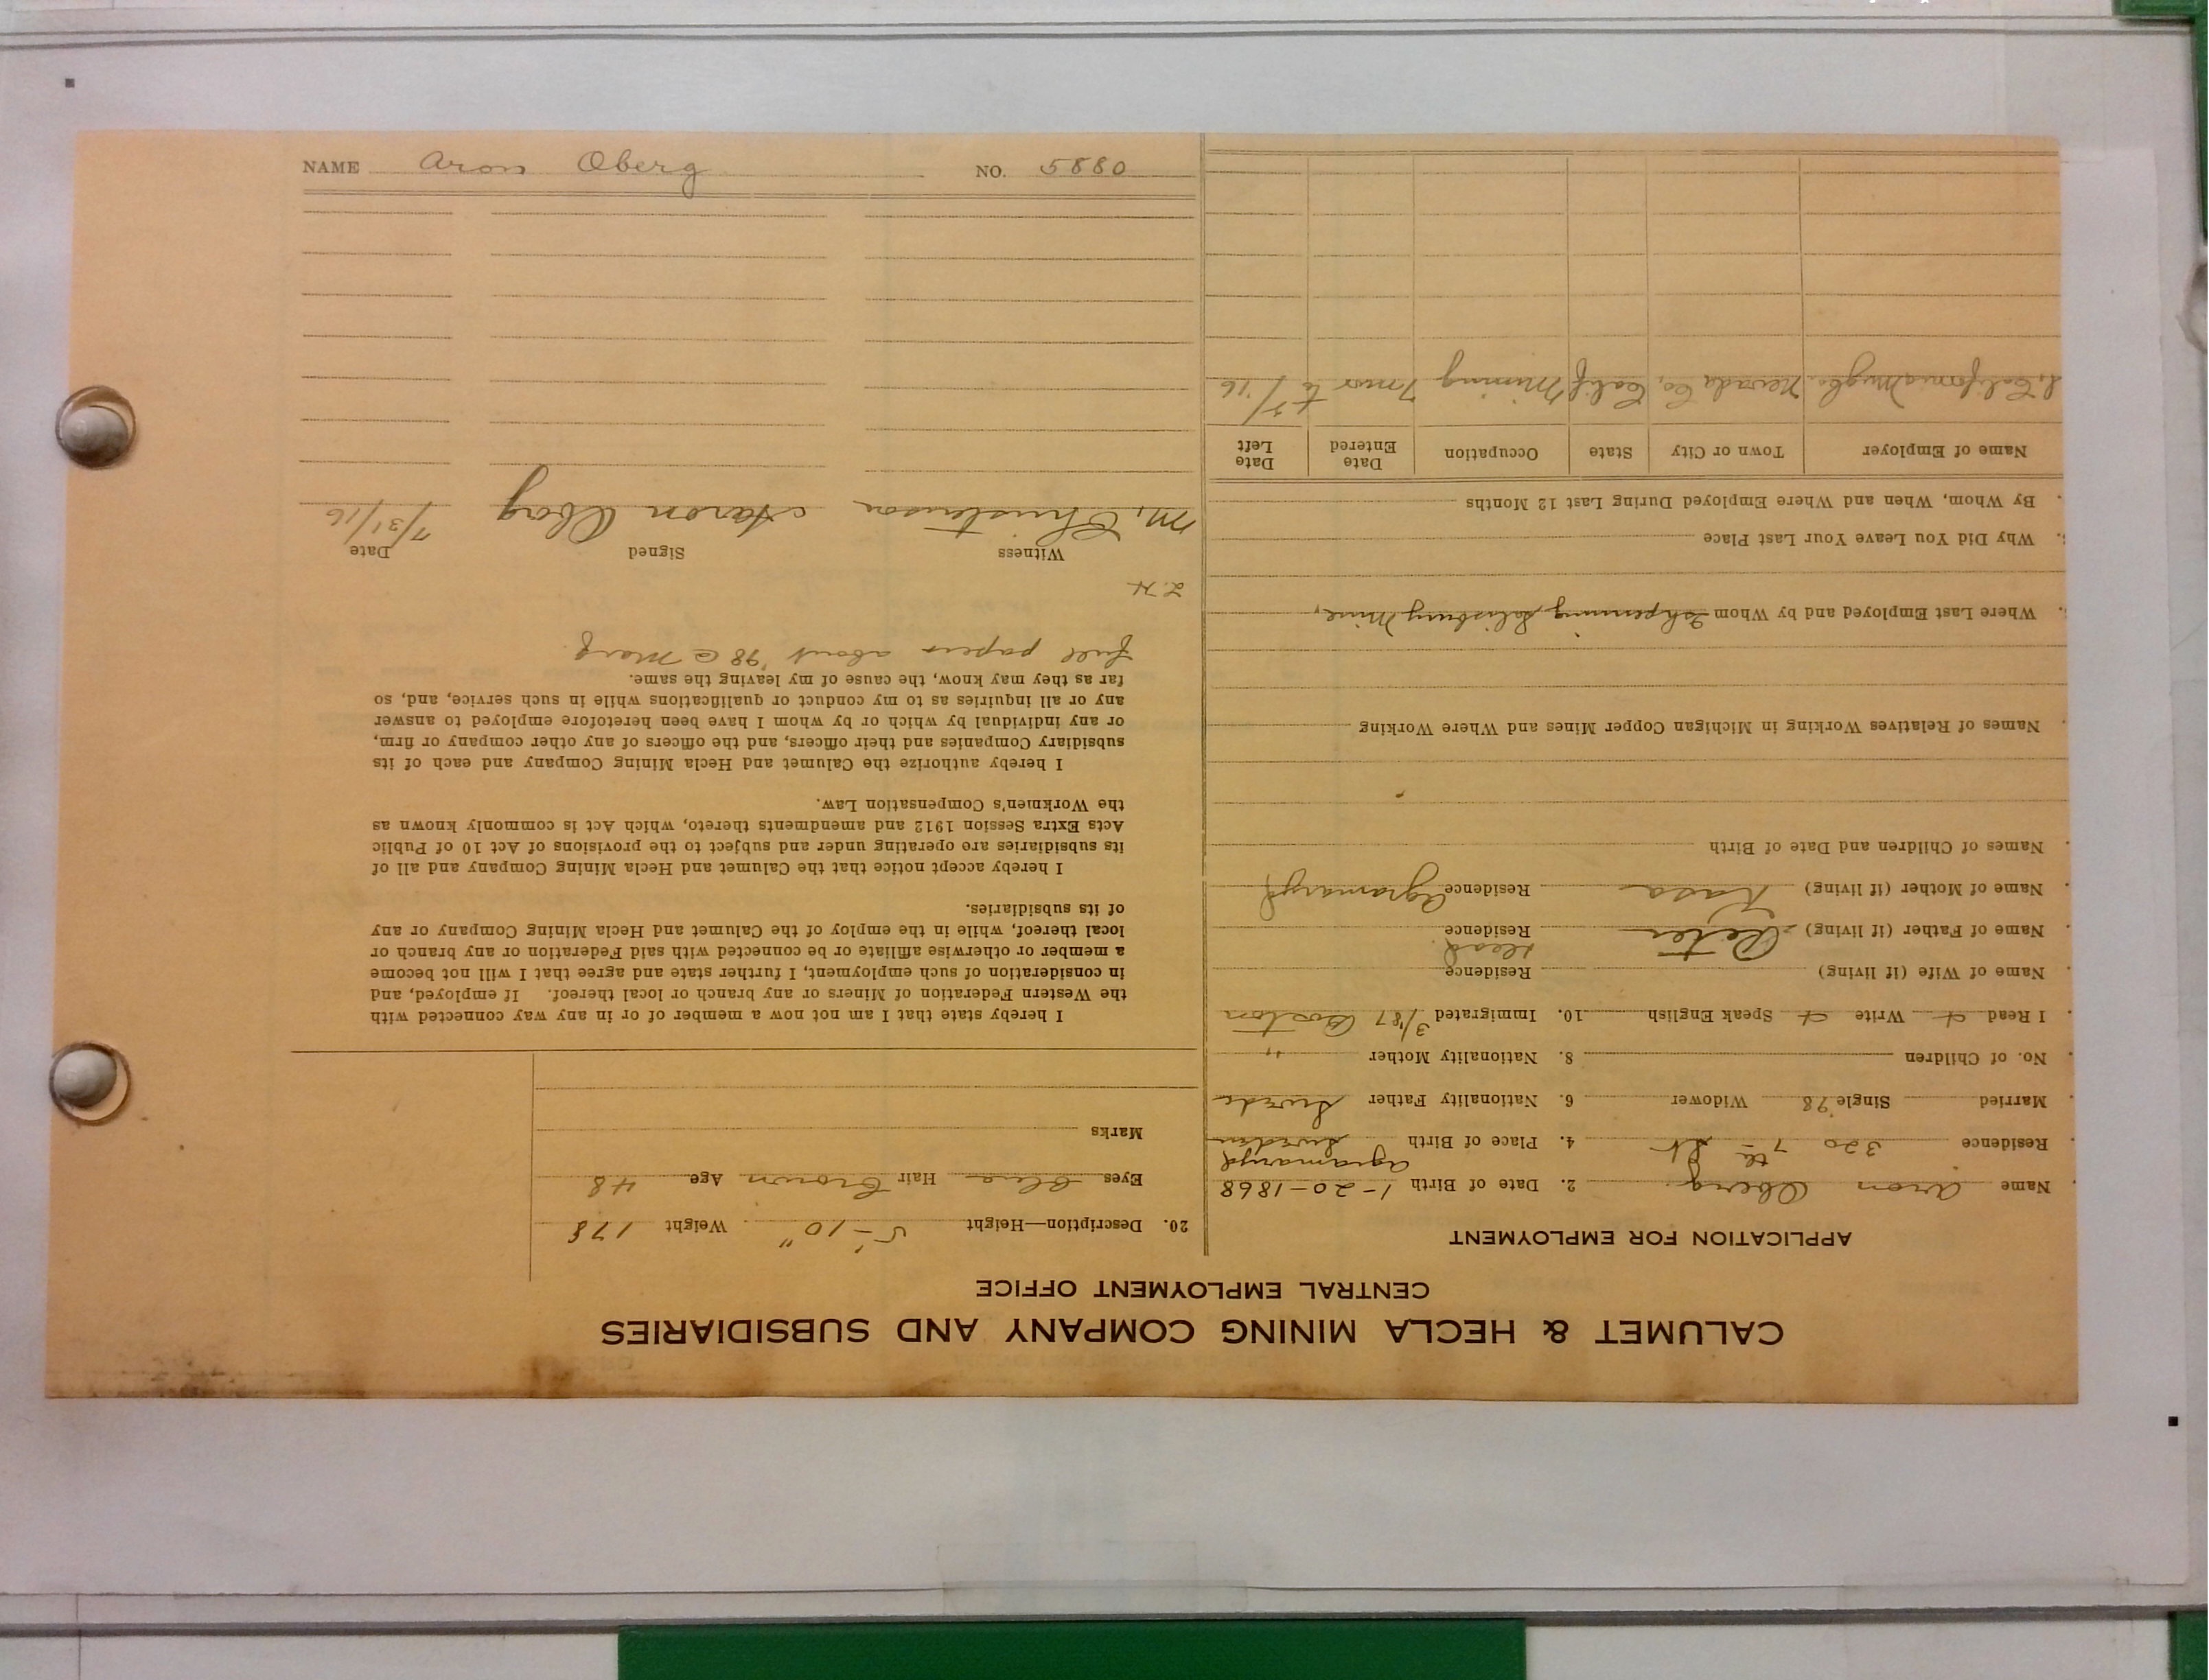 CALUMET & HECLA MINING COMPANY AND SUBSIDIARIES
CENTRAL EMPLOYMENT OFFICE
APPLICATION FOR EMPLOYMENT
Name Aron Oberg 2. Date of Birth 1-20-1868
Agramaryd
Residence 320 7th St 4. Place of Birth Sweden
Married Single '98 Widower 6. Nationality Father Swede
No. of Children 8. Nationality Mother "
I Read + Write + Speak English 10. Immigrated 3/'87 Boston
Name of Wife (if living) Residence
Name of Father (if living) Peter Residence Dead
Name of Mother (if living) Residence Agramaryd
Names of Children and Date of Birth
Names of Relatives Working in Michigan Copper Mines and Where Working
Where Last Employed and by Whom Ishpeming Salisbury Mine,
Why Did You Leave Your Last Place
By Whom, When and Where Employed During Last 12 Months
Name of Employer Town or City State Occupation Date Entered Date Left
California Mng Co. Nevada Co, Calif Mining 7 mos to 7/'16
20. Description—Height 5'-10" Weight 178
Eyes Blue Hair Brown Age 48
Marks
I hereby state that I am not now a member of or in any way connected with
the Western Federation of Miners or any branch or local thereof. If employed, and
in consideration of such employment, I further state and agree that I will not become
a member or otherwise affiliate or be connected with said Federation or any branch or
local thereof, while in the employ of the Calumet and Hecla Mining Company or any
of its subsidiaries.
I hereby accept notice that the Calumet and Hecla Mining Company and all of
its subsidiaries are operating under and subject to the provisions of Act 10 of Public
Acts Extra Session 1912 and amendments thereto, which Act is commonly known as
the Workmen's Compensation Law.
I hereby authorize the Calumet and Hecla Mining Company and each of its
subsidiary Companies and their officers, and the officers of any other company or firm,
or any individual by which or by whom I have been heretofore employed to answer
any or all inquiries as to my conduct or qualifications while in such service, and, so
far as they may know, the cause of my leaving the same.
full papers about '98 @ Marq
Witness Signed Date
M. Christenson Aaron Oberg 7/31/16
NAME Aron Oberg NO. 5880